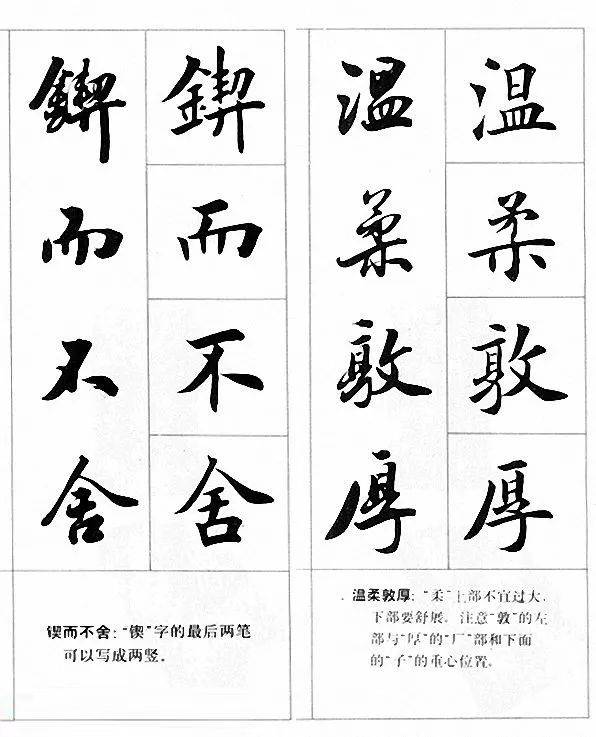 温柔敦厚
温柔敦厚
温柔敦厚：“柔”上部不宜过大，
下部要舒展。注意“敦”的左
部与“厚”的“厂”部和下面
的“子”的重心位置。
鍥而不舍
鍥而不舍
锲而不舍：“锲”字的最后两笔
可以写成两竖。